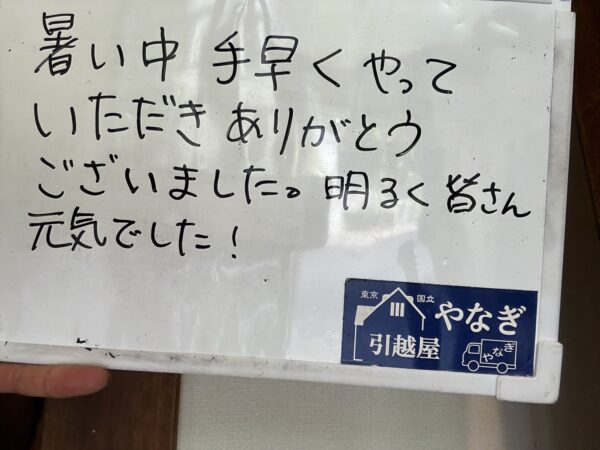 暑い中 手早くやって
いただき ありがとう
ございました。明るく皆さん
元気でした！
東京 国立 やなぎ
引越屋 やなぎ